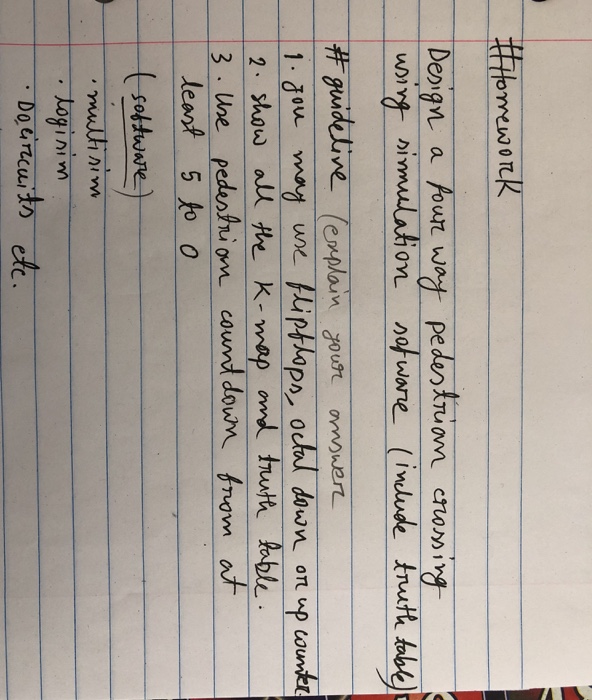 #Homework
Design a four way pedestrian crossing
using simulation sofware (include truth table)
# guideline (explain your answer
1. you may use flipflops, octal down or up counter
2. show all the K-map and truth table.
3. Use pedestrian countdown from at
least 5 to 0
(software)
· multisim
· logisim
· Dcircuits etc.